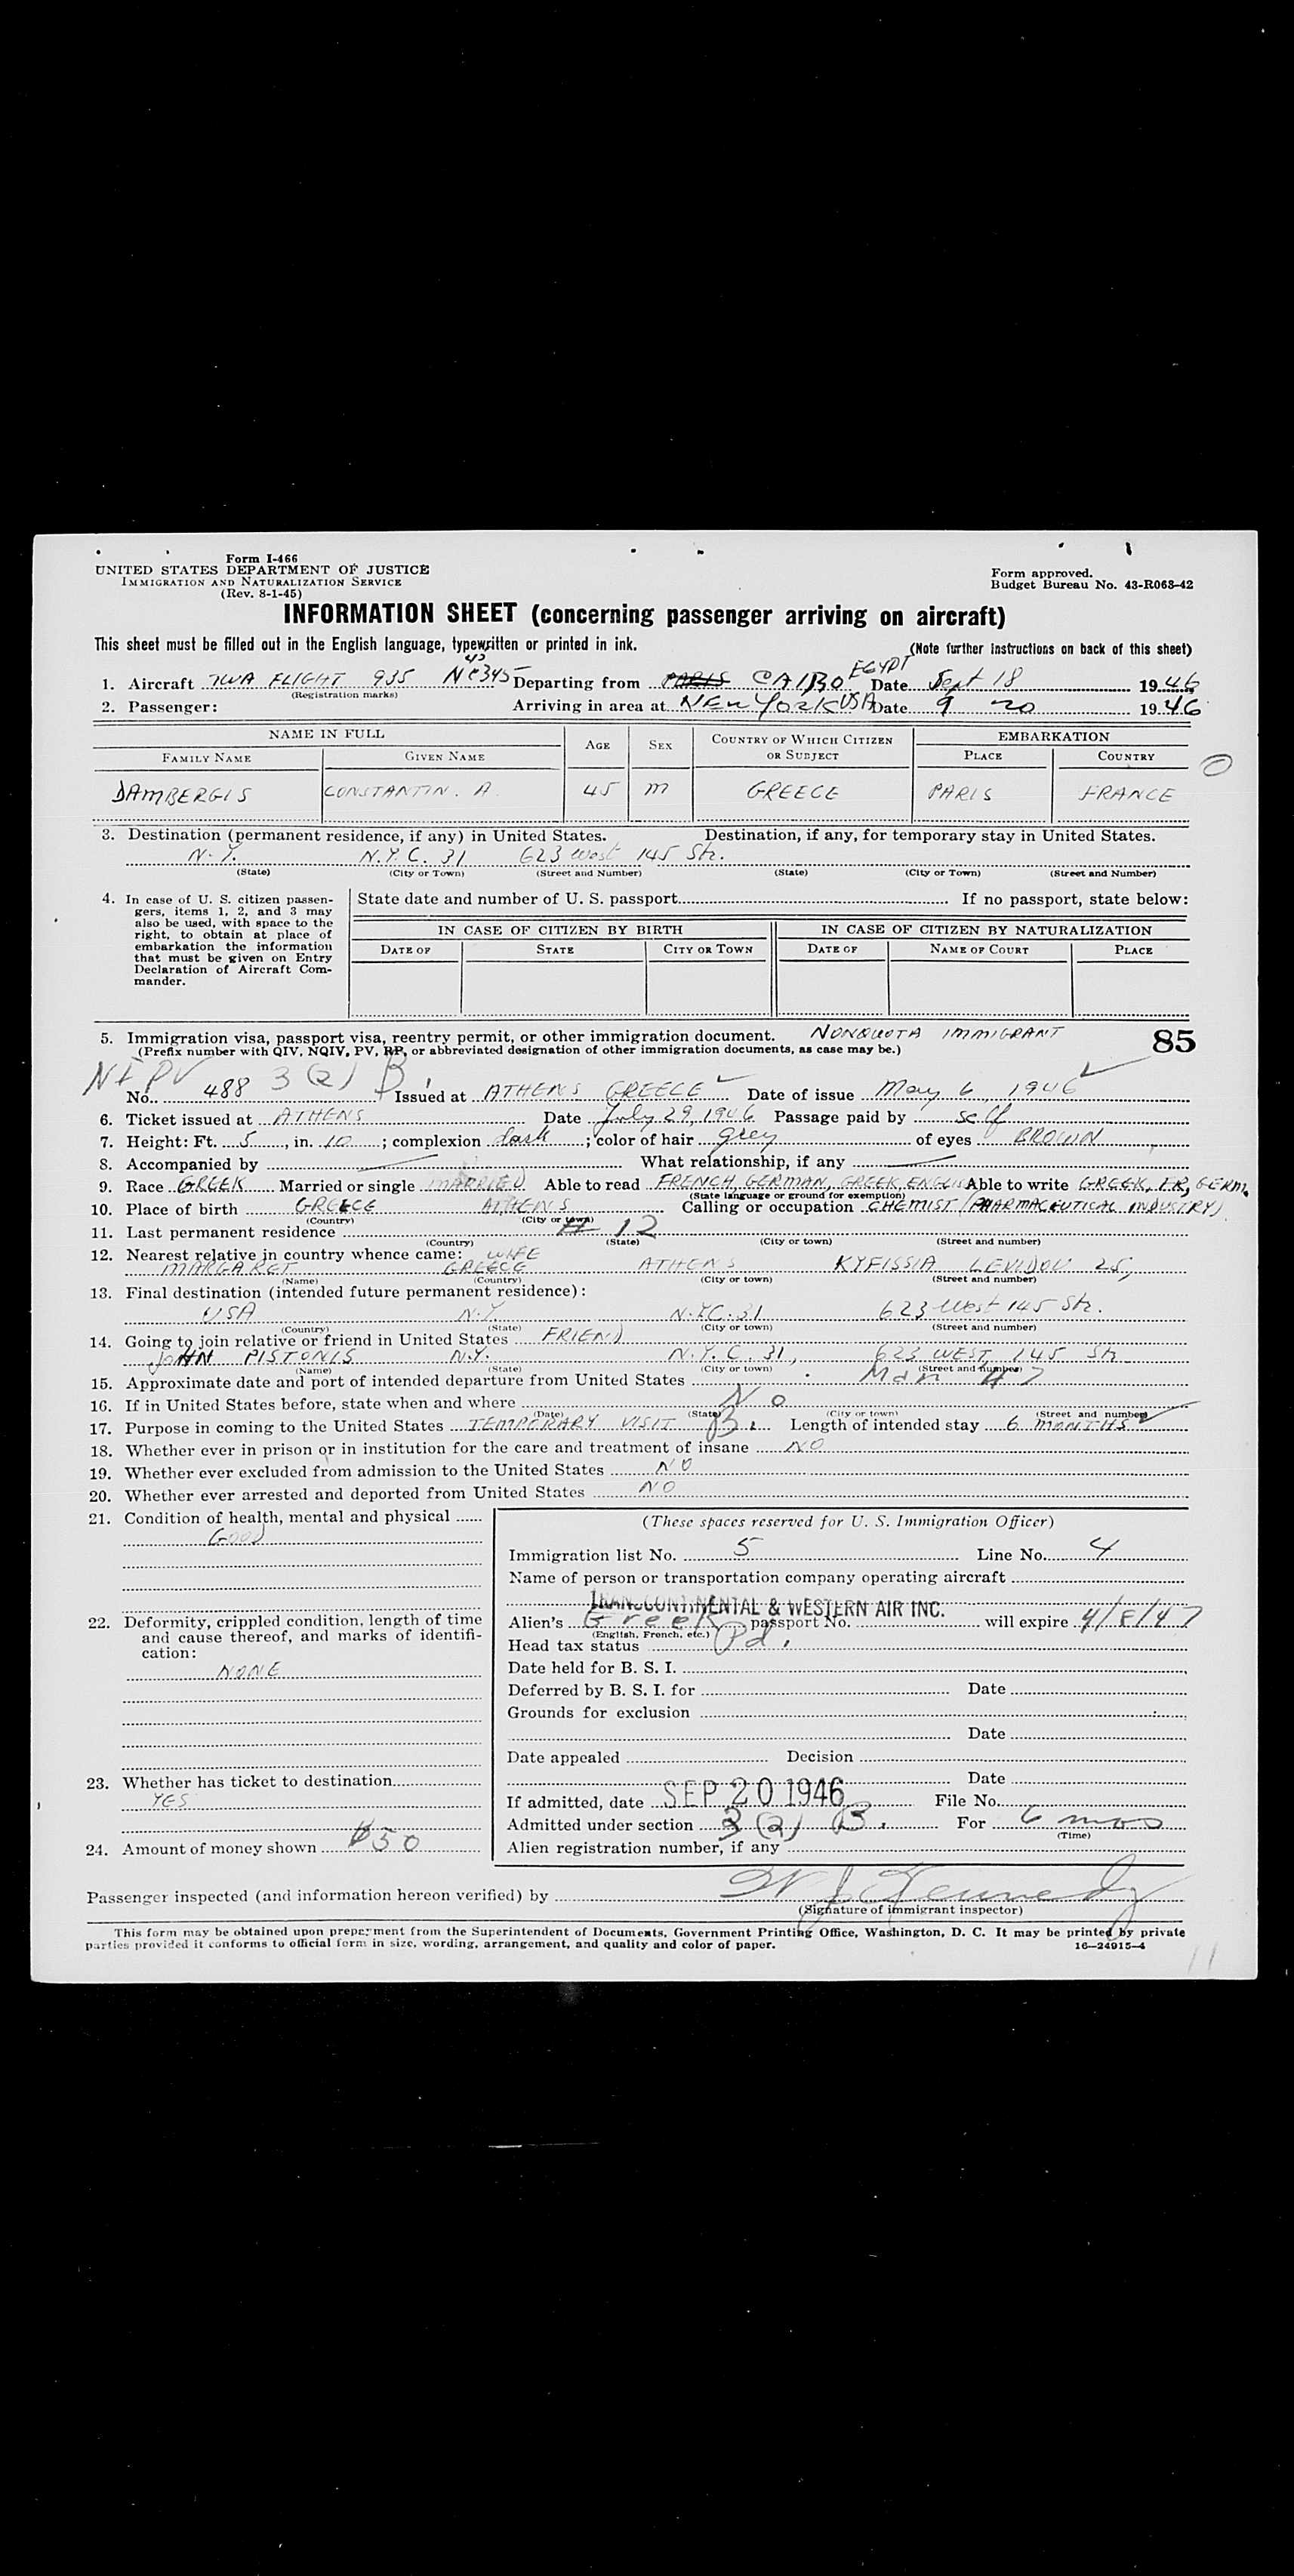 Form I-466
UNITED STATES DEPARTMENT OF JUSTICE
IMMIGRATION AND NATURALIZATION SERVICE
(Rev. 8-1-45)
Form approved.
Budget Bureau No. 43-R063-42
INFORMATION SHEET (concerning passenger arriving on aircraft)
This sheet must be filled out in the English language, typewritten or printed in ink.
(Note further instructions on back of this sheet)
1. Aircraft TWA FLIGHT 935 NC345 Departing from PARIS CAIRO EGYPT Date Sept 18 1946
(Registration marks)
2. Passenger: Arriving in area at NEW YORK USA Date 9 20 1946
NAME IN FULL AGE SEX COUNTRY OF WHICH CITIZEN OR SUBJECT EMBARKATION
FAMILY NAME GIVEN NAME PLACE COUNTRY
DAMBERGIS CONSTANTIN. A 45 M GREECE PARIS FRANCE
3. Destination (permanent residence, if any) in United States. Destination, if any, for temporary stay in United States.
N.Y. N.Y.C. 31 623 West 145 Str.
(State) (City or Town) (Street and Number) (State) (City or Town) (Street and Number)
4. In case of U. S. citizen passengers, items 1, 2, and 3 may also be used, with space to the right, to obtain at place of embarkation the information that must be given on Entry Declaration of Aircraft Commander.
State date and number of U. S. passport If no passport, state below:
IN CASE OF CITIZEN BY BIRTH IN CASE OF CITIZEN BY NATURALIZATION
DATE OF STATE CITY OR TOWN DATE OF NAME OF COURT PLACE
5. Immigration visa, passport visa, reentry permit, or other immigration document. NONQUOTA IMMIGRANT 85
(Prefix number with QIV, NQIV, PV, RP, or abbreviated designation of other immigration documents, as case may be.)
PV No. 488 3(2) B Issued at ATHENS GREECE Date of issue May 6, 1946
6. Ticket issued at ATHENS Date July 29, 1946 Passage paid by self
7. Height: Ft. 5, in. 10; complexion dark; color of hair grey of eyes BROWN
8. Accompanied by What relationship, if any
9. Race GREEK Married or single MARRIED Able to read FRENCH, GERMAN, GREEK, ENGLISH Able to write GREEK, FR, GERM.
(State language or ground for exemption)
10. Place of birth GREECE ATHENS Calling or occupation CHEMIST (PHARMACEUTICAL INDUSTRY)
(Country) (City or town)
11. Last permanent residence # 12
(Country) (State) (City or town) (Street and number)
12. Nearest relative in country whence came: WIFE
MARGARET GREECE ATHENS KYFISSIA LEVIDOU 25,
(Name) (Country) (City or town) (Street and number)
13. Final destination (intended future permanent residence):
USA N.Y. N.Y.C. 31 623 West 145 Str.
(Country) (State) (City or town) (Street and number)
14. Going to join relative or friend in United States FRIEND
JOHN PISTONIS N.Y. N.Y.C. 31, 623 WEST, 145 Str
(Name) (State) (City or town) (Street and number)
15. Approximate date and port of intended departure from United States Mar 47
16. If in United States before, state when and where NO
(Date) (State) (City or town) (Street and number)
17. Purpose in coming to the United States TEMPORARY VISIT B. Length of intended stay 6 MONTHS
18. Whether ever in prison or in institution for the care and treatment of insane NO
19. Whether ever excluded from admission to the United States NO
20. Whether ever arrested and deported from United States NO
21. Condition of health, mental and physical
GOOD
22. Deformity, crippled condition, length of time and cause thereof, and marks of identification:
NONE
23. Whether has ticket to destination
YES
24. Amount of money shown $50
(These spaces reserved for U. S. Immigration Officer)
Immigration list No. 5 Line No. 4
Name of person or transportation company operating aircraft
TRANSCONTINENTAL & WESTERN AIR INC.
Alien's Greek passport No. will expire 4/8/47
(English, French, etc.)
Head tax status Pd.
Date held for B. S. I.
Deferred by B. S. I. for Date
Grounds for exclusion
Date
Date appealed Decision
Date
If admitted, date SEP 20 1946 File No.
Admitted under section 3 (2) B. For 6 mos
(Time)
Alien registration number, if any
Passenger inspected (and information hereon verified) by W J Kennedy
(Signature of immigrant inspector)
This form may be obtained upon prepayment from the Superintendent of Documents, Government Printing Office, Washington, D. C. It may be printed by private
parties provided it conforms to official form in size, wording, arrangement, and quality and color of paper. 16—24915-4
11